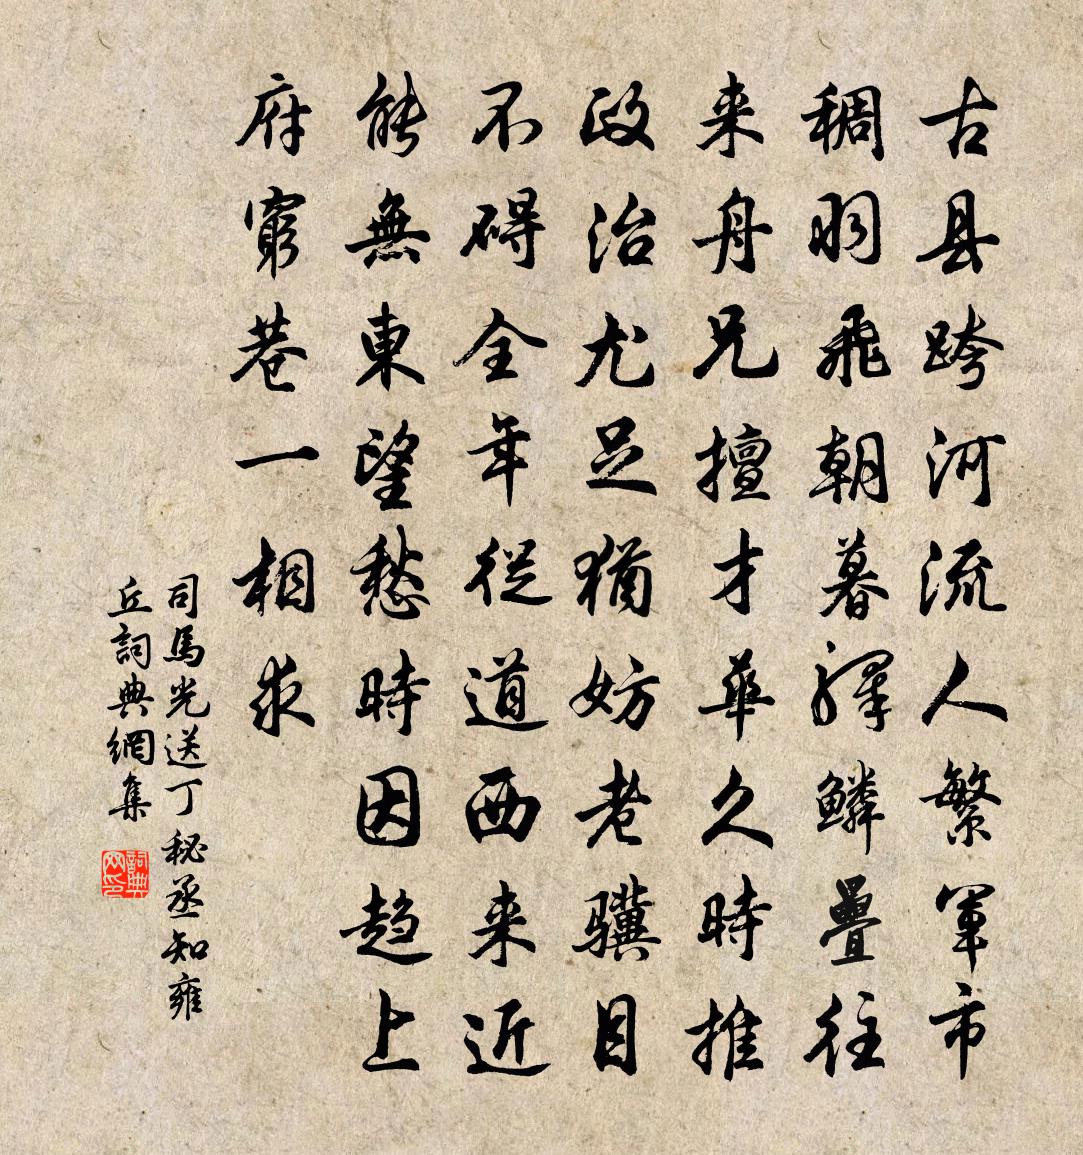 古县跨河流人繁軍市
稠羽飛朝暮驛鱗疊往
来舟兄擅才華久時推
政治尤足猶妨老驥目
不碍全年從道西来近
能無東望愁時因趋上
府窮巷一相求
司馬光送丁秘丞知雍
丘詞典網集
詞典
网印